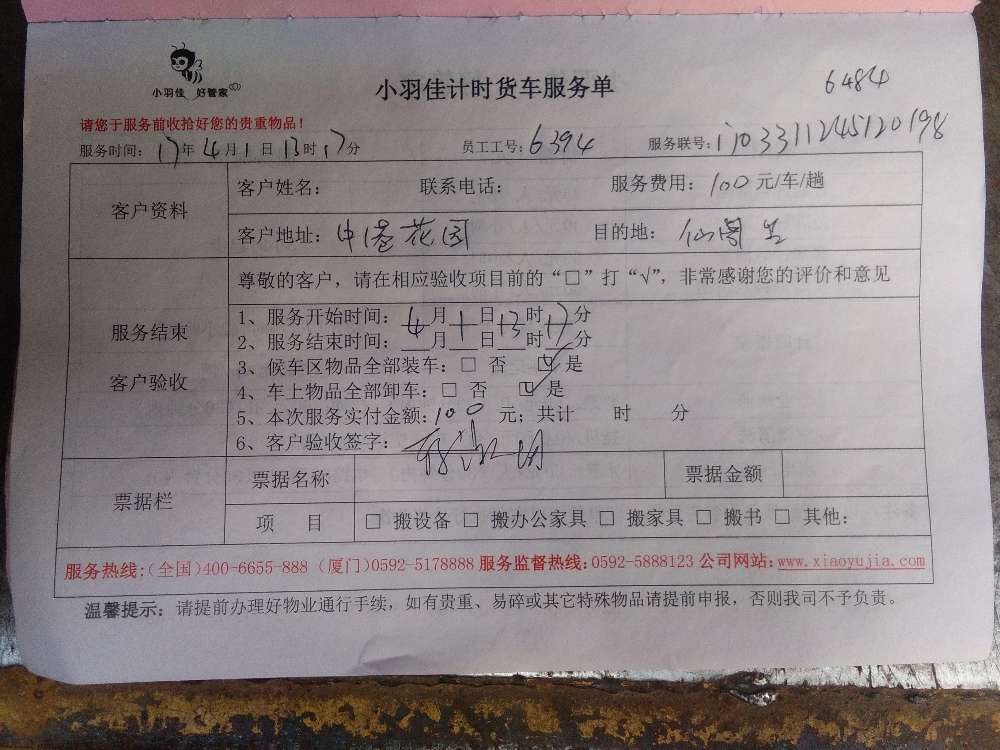 小羽佳 好管家
小羽佳计时货车服务单
6484
请您于服务前收拾好您的贵重物品！
服务时间：17年4月1日13时17分 员工工号：6394 服务联号：
客户资料
客户姓名： 联系电话： 服务费用：100元/车/趟
客户地址：中港花园 目的地：仙阁
尊敬的客户，请在相应验收项目前的“□”打“√”，非常感谢您的评价和意见
服务结束
客户验收
1、服务开始时间：4月1日13时17分
2、服务结束时间：__月__日__时__分
3、候车区物品全部装车：□ 否 ☑ 是
4、车上物品全部卸车：□ 否 ☑ 是
5、本次服务实付金额：100 元；共计 时 分
6、客户验收签字：
票据栏
票据名称 票据金额
项 目 □ 搬设备 □ 搬办公家具 □ 搬家具 □ 搬书 □ 其他：
服务热线：（全国）400-6655-888（厦门）0592-5178888 服务监督热线：0592-5888123 公司网站：www.xiaoyujia.com
温馨提示：请提前办理好物业通行手续，如有贵重、易碎或其它特殊物品请提前申报，否则我司不予负责。